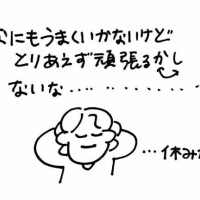 なにもうまくいかないけど
とりあえず頑張るかし
ないな‥‥ ‥ ‥ ‥ ‥
…休み